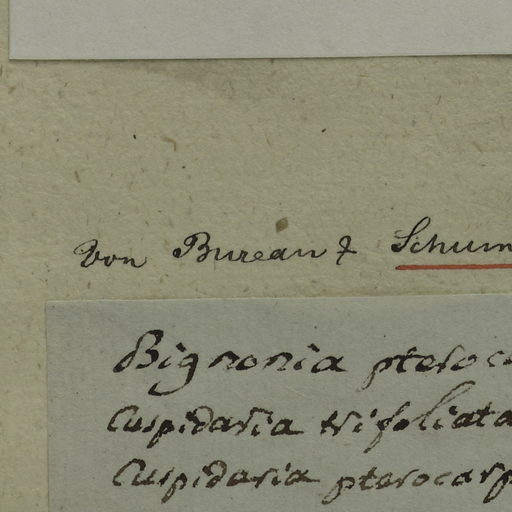 Von Bureau & Schum
Bignonia pteroc
Cuspidaria trifoliata
Cuspidaria pterocarp